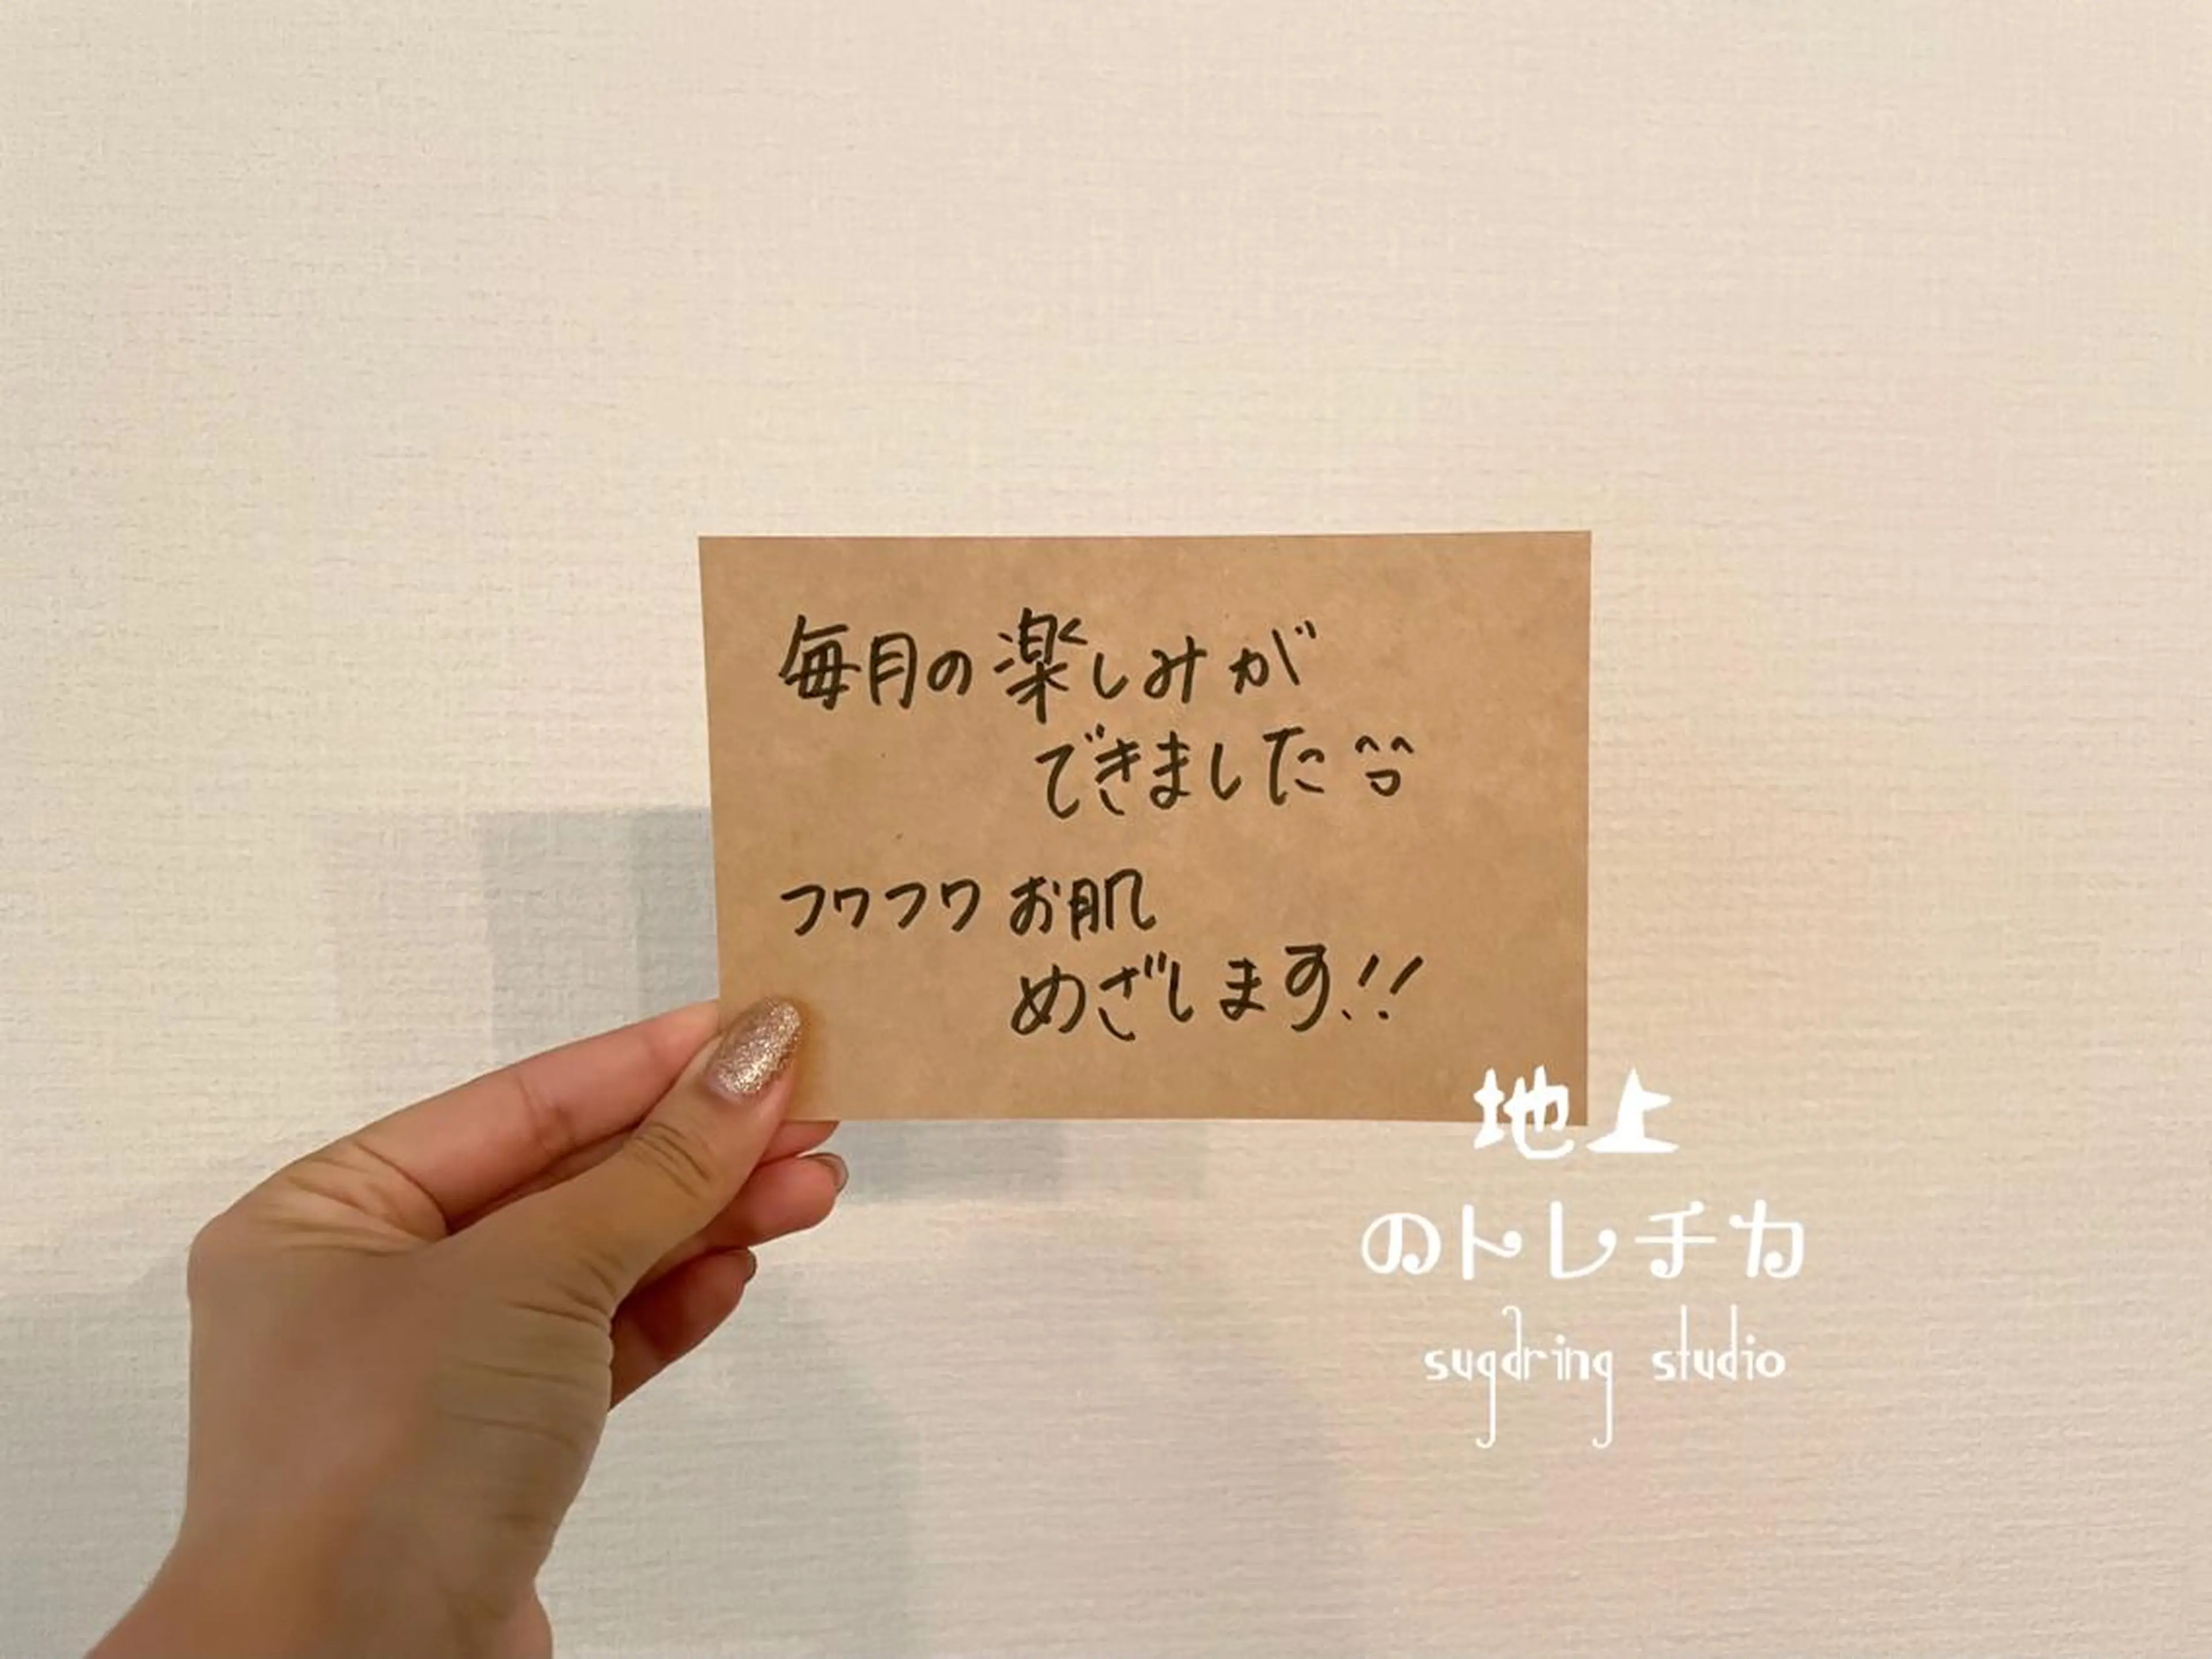 毎月の楽しみが
できました^^
フワフワお肌
めざします!!
地上
のトレチカ
sugaring studio